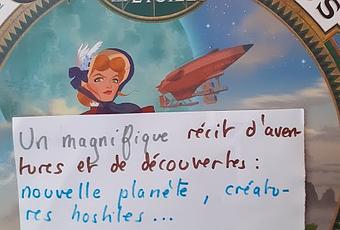 Un magnifique récit d'aven-
tures et de découvertes :
nouvelle planète, créatu-
res hostiles...